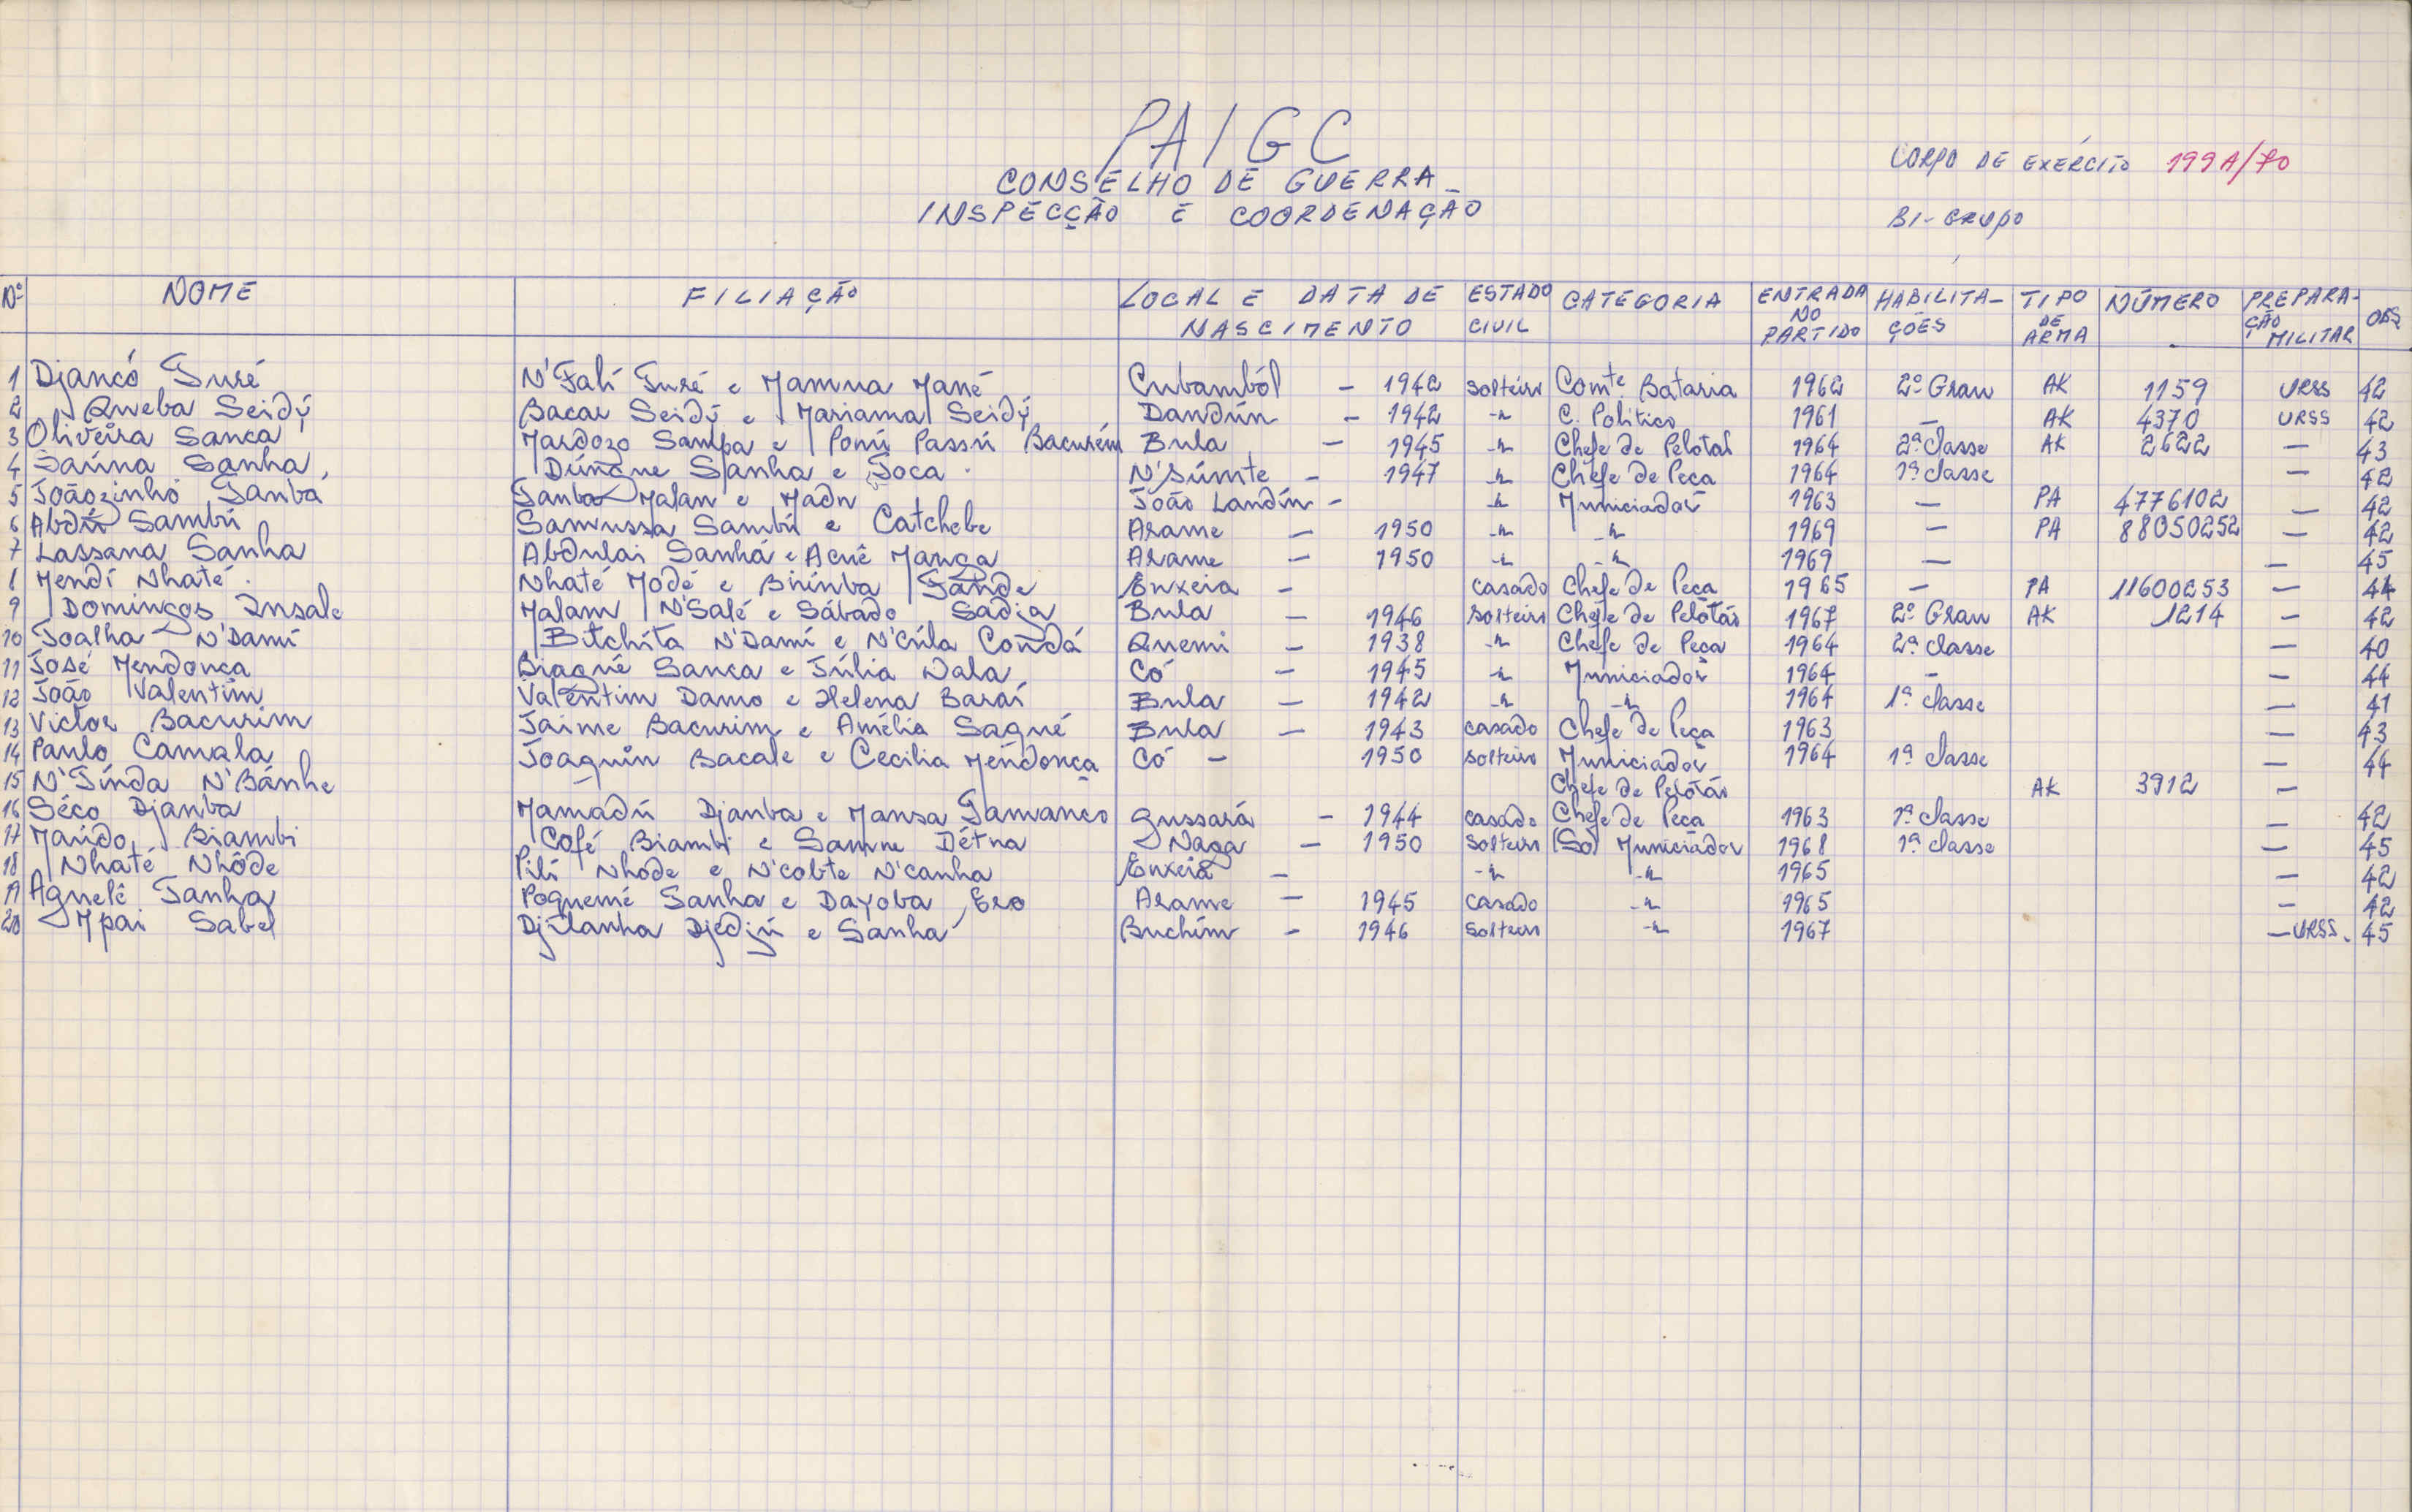 PAIGC
CONSELHO DE GUERRA
INSPECÇÃO E COORDENAÇÃO
CORPO DE EXÉRCITO 199A/70
BI-GRUPO
Nº NOME FILIAÇÃO LOCAL E DATA DE NASCIMENTO ESTADO CIVIL CATEGORIA ENTRADA NO PARTIDO HABILITA-ÇÕES TIPO DE ARMA NÚMERO PREPARA-ÇÃO MILITAR OBS
1 Djancó Turé N'Fali Turé e Mamua Mané Cubamból - 1942 solteiro Comte. Bataria 1962 2º Grau AK 1159 URSS 42
2 Queba Seidý Bacar Seidý e Mariama Seidý Dandún - 1942 -"- C. Politico 1961 — AK 4370 URSS 42
3 Oliveira Sanca Mardozo Sampa e Ponú Passú Bacurém Bula - 1945 -"- Chefe de Pelotão 1964 2ª classe AK 2622 — 43
4 Saúna Sanha Dúngue Sanha e Joca N'Súmte - 1947 -"- Chefe de Peça 1964 1ª classe — 42
5 Joãozinho Tambá Tamba Malan e Madu João Landín - -"- Municiador 1963 — PA 4776102 — 42
6 Abdú Sambú Samussa Sambú e Catchebe Arame - 1950 -"- -"- 1969 — PA 88050252 — 42
7 Lassana Sanha Abdulai Sanhá e Acuê Manga Arame - 1950 -"- -"- 1969 — — 45
8 Mendí Nhaté Nhaté Modé e Birínba Tánde Enxeia - casado Chefe de Peça 1965 — PA 11600253 — 44
9 Domingos Insale Malam N'Salé e Sábado Sadja Bula - 1946 solteiro Chefe de Pelotão 1967 2º Grau AK 1214 — 42
10 Joalha N'Damí Bitchita N'Damí e N'Cúla Condá Quemi - 1938 -"- Chefe de Peça 1964 2ª classe — 40
11 José Mendonça Biagué Sanca e Júlia Nala Có - 1945 -"- Municiador 1964 — — 44
12 João Valentim Valentim Damo e Helena Baraí Bula - 1942 -"- -"- 1964 1ª classe — 41
13 Victor Bacurim Jaime Bacurim e Amélia Sagué Bula - 1943 casado Chefe de Peça 1963 — 43
14 Paulo Camala Joaquin Bacale e Cecilia Mendonça Có - 1950 solteiro Municiador 1964 1ª classe — 44
15 N'Tínda N'Bánhe Chefe de Pelotão AK 3912 —
16 Séco Djamba Mamadú Djamba e Mansa Tamanco Gussará - 1944 casado Chefe de Peça 1963 1ª classe — 42
17 Maúdo Biambi Cofé Biambi e Samne Détna Naga - 1950 solteiro (So) Municiador 1968 1ª classe — 45
18 Nhaté Nhôde Pilí Nhode e N'cobte N'canha Enxeia - -"- -"- 1965 — 42
19 Agnelê Sanha Poquemé Sanha e Dayoba Ero Arame - 1945 casado -"- 1965 — 42
20 Mpai Sabel Djilanha Djedjú e Sanha Buchím - 1946 solteiro -"- 1967 — URSS. 45